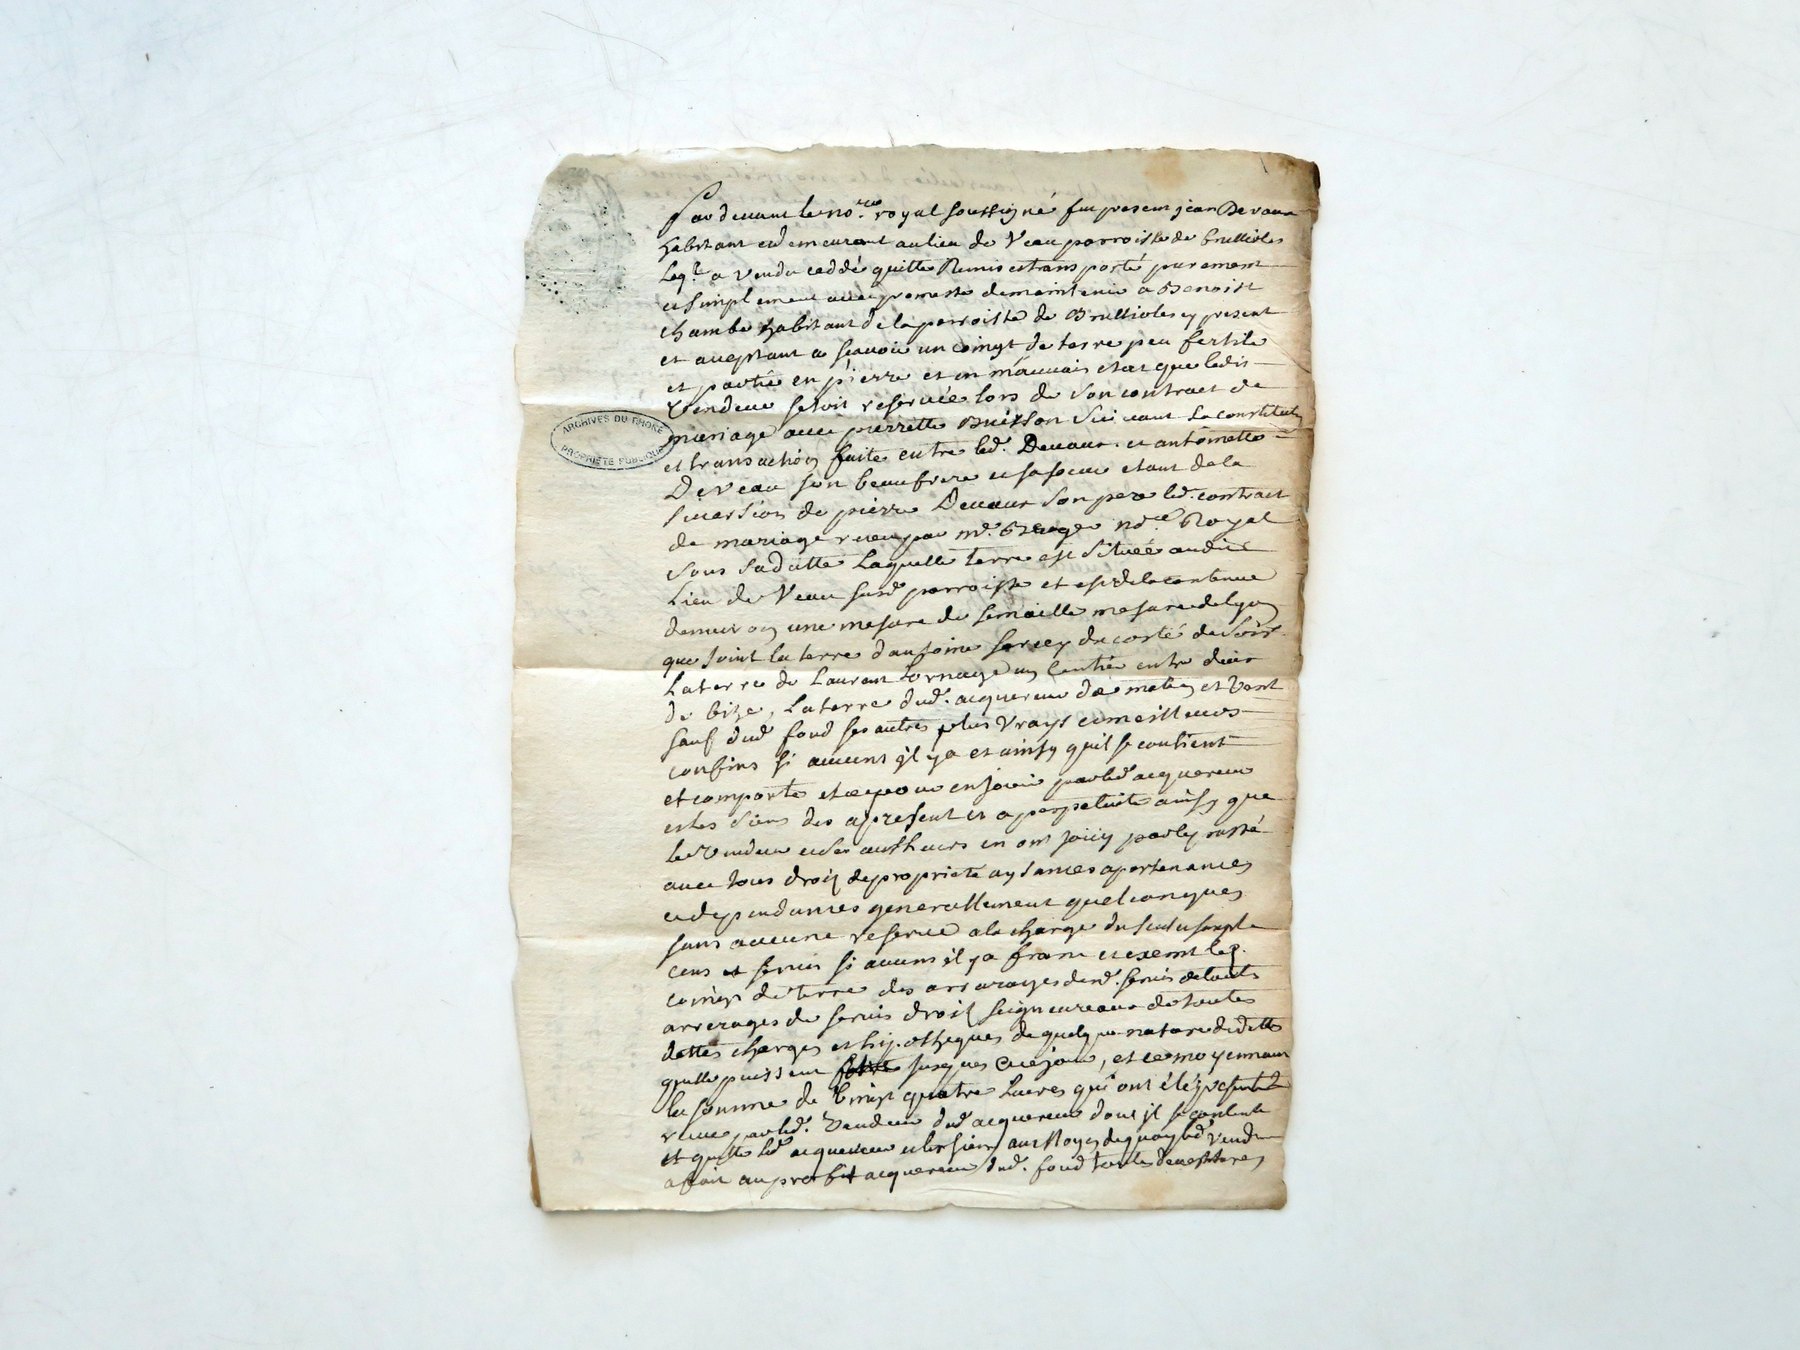 Par devant le no.re royal soussigné fut present jean Devaux
habitant et demeurant au lieu de Veau parroisse de brussioles
leq.l a vendu ceddé quitté Remis et transporté purement
et simplement avec promesse de maintenir a Benoist
chambe habitant de la parroisse de Brussioles cy present
et aceptant a scavoir un coingt de terre peu fertile
et partie en pierre et en mauvais etat que ledit
Vendeur setoit reservée lors de son contract de
mariage avec pierrette Buisson suivant la constitution
et transaction faite entre led. Devaux et antoinette
Deveau son beaufrere et sa soeur etant de la
succession de pierre Devaux son pere led. contract
de mariage receu par m.e no.re Royal
sous sa datte laquelle terre est située audit
Lieu de Veau susd. parroisse et est de la contenue
denviron une mesure de semaille mesure de lyon
que joint la terre dantoine sercey du costé de soir
la terre de Laurent un sentier entre deux
de bize, la terre dud. acquereur de matin et Vent
sauf dud. fond ses autres plus vrays et meilleurs
confins si aucuns il y a et ainsy quil se contient
et comporte et pour en jouir par led. acquereur
et les siens des apresent et a perpetuité ainsy que
le Vendeur et ses autheurs en ont jouy par le passé
avec tous droits de proprieté aysances apartenances
et dependances generallement quelconques
sans aucune reserve a la charge du seul et simple
cens et servis si aucuns il y a franc et exempt led.
coingt de terre des arrerages dud. servis de touts
arrerages de servis droits seigneureaux de toutes
dettes charges et hipotheques de quelque nature
quelle puissent jusques a ce jour, et ce moyennant
la somme de Vingt quatre Livres qui ont été presentement
receue par led. Vendeur dud. acquereur dont il se contente
et quitte led. acquereur et les siens au Moyen de quoy led. vendeur
a fait au profit acquereur dud. fond toutes devestitures
ARCHIVES DU RHONE
PROPRIÉTÉ PUBLIQUE